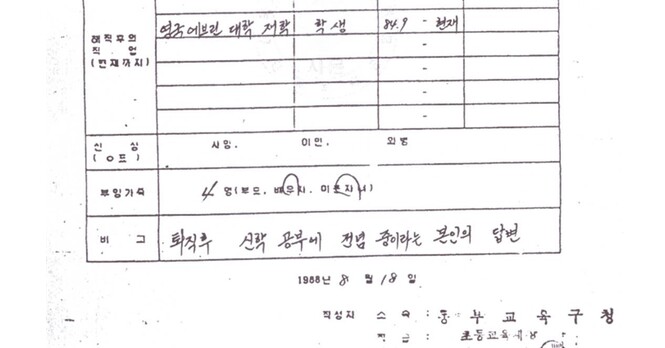 영국에브린 대학 재학 학생 84.9 - 현재
해직후의
직 업
(현재까지)
-
-
-
-
신 상
(O표)
사망. 이민. 와병
부양가족
4 명(부모, 배우자, 미혼자녀)
비 고
퇴직후 신학 공부에 전념 중이라는 본인의 답변
1988년 8 월 18 일
작성자 소 속 : 동 부 교 육 구 청
직 급 : 초등교육